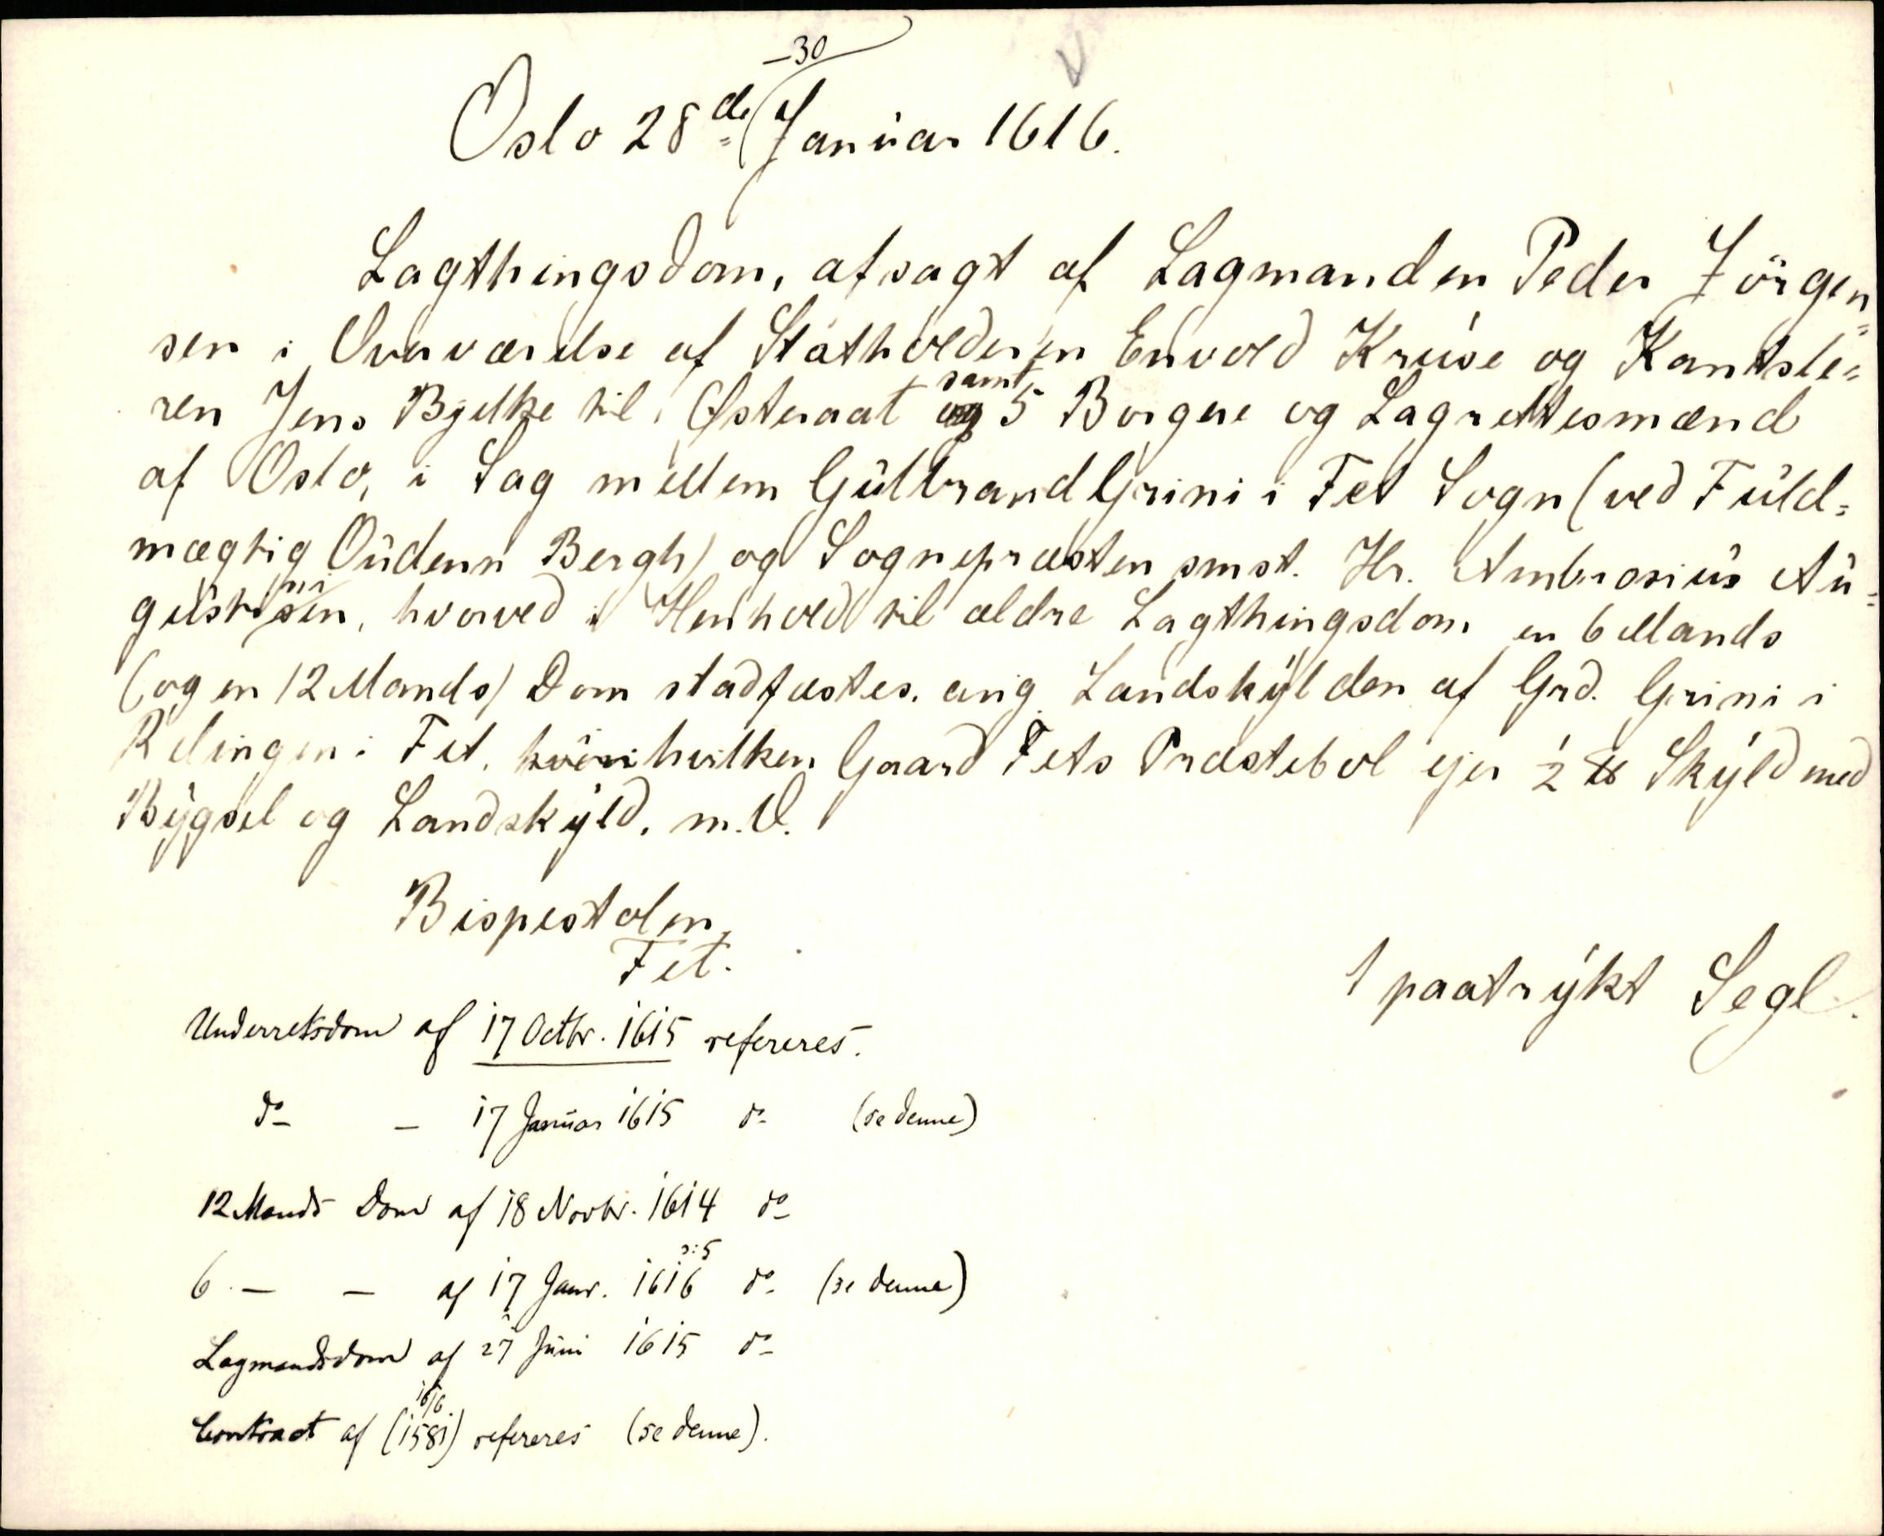 –30
Oslo 28de Januar 1616.
Lagthingsdom, afsagt af Lagmanden Peder Jörgen=
sen i Overværelse af Statholderen Envold Kruse og Kantsle=
ren Jens Bjelke til Østeraat samt 5 Borgere og Lagrettesmænd
af Oslo, i Sag mellem Gulbrand Grini i Fet Sogn (ved Fuld=
mægtig Oudenn Bergh) og Sognepræsten smst. Hr. Ambrosius Au=
gustini, hvorved i Henhold til ældre Lagthingsdom en 6 Mands
(og en 12 Mands) Dom stadfæstes. ang. Landskylden af Grd. Grini i
Relingen i Fet, i hvilken Gaard Fets Præstebol ejer ½ ℔ Skyld med
Bygsel og Landskyld. m. V.
Bispestolen
Fet.
1 paatrykt Segl.
Underretsdom af 17 Octbr. 1615 refereres.
do – 17 Januar 1615 do (se denne)
12 Mands Dom af 18 Novbr. 1614 do
6 – – af 17 Janr. 1616 ɔ: 5 do (se denne)
Lagmandsdom af 27 Juni 1615 do
Contract af (1581) refereres (se denne).